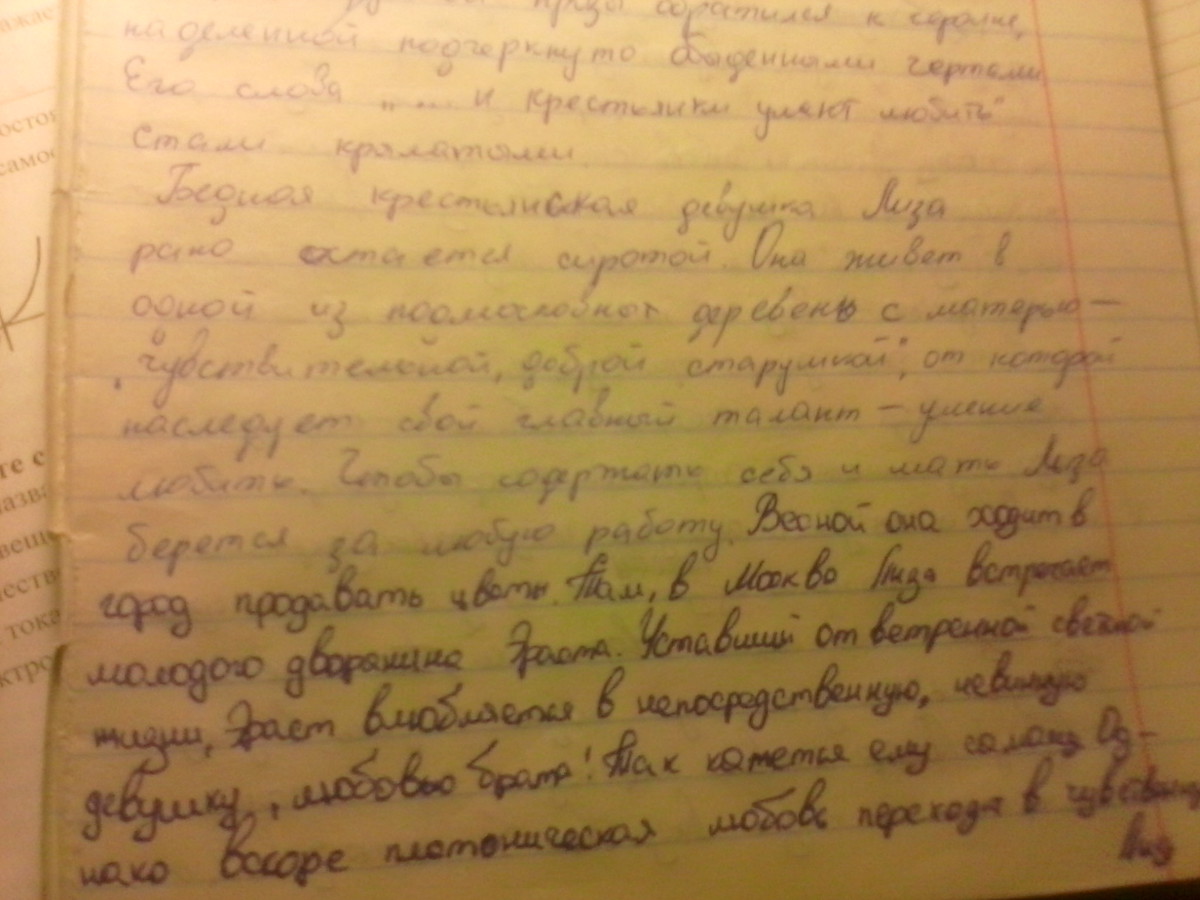 прозы обратился к героине,
наделенной подчеркнуто обыденными чертами
Его слова „ ... и крестьянки умеют любить"
стали крылатыми
Бедная крестьянская девушка Лиза
рано остается сиротой. Она живет в
одной из подмосковных деревень с матерью —
"чувствительной, доброй старушкой", от которой
наследует свой главный талант — умение
любить. Чтобы содержать себя и мать Лиза
берется за любую работу. Весной она ходит в
город продавать цветы. Там, в Москве Лиза встречает
молодого дворянина Эраста. Уставший от ветренной светской
жизни, Эраст влюбляется в непосредственную, невинную
девушку „любовью брата". Так кажется ему самому. Од-
нако вскоре платоническая любовь переходит в чувственную
остоя
самос
те с
назва
вещ
честв
тока
ктро